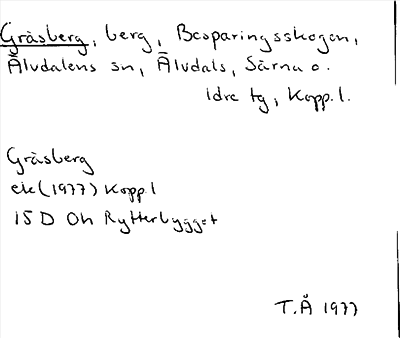 Gråsberg, berg, Besparingsskogen,
Älvdalens sn, Älvdals, Särna o.
Idre tg, Kopp. l.
Gråsberg
ek (1977) Kopp. l
15 D 0h Rytterbygget
T.Å 1977